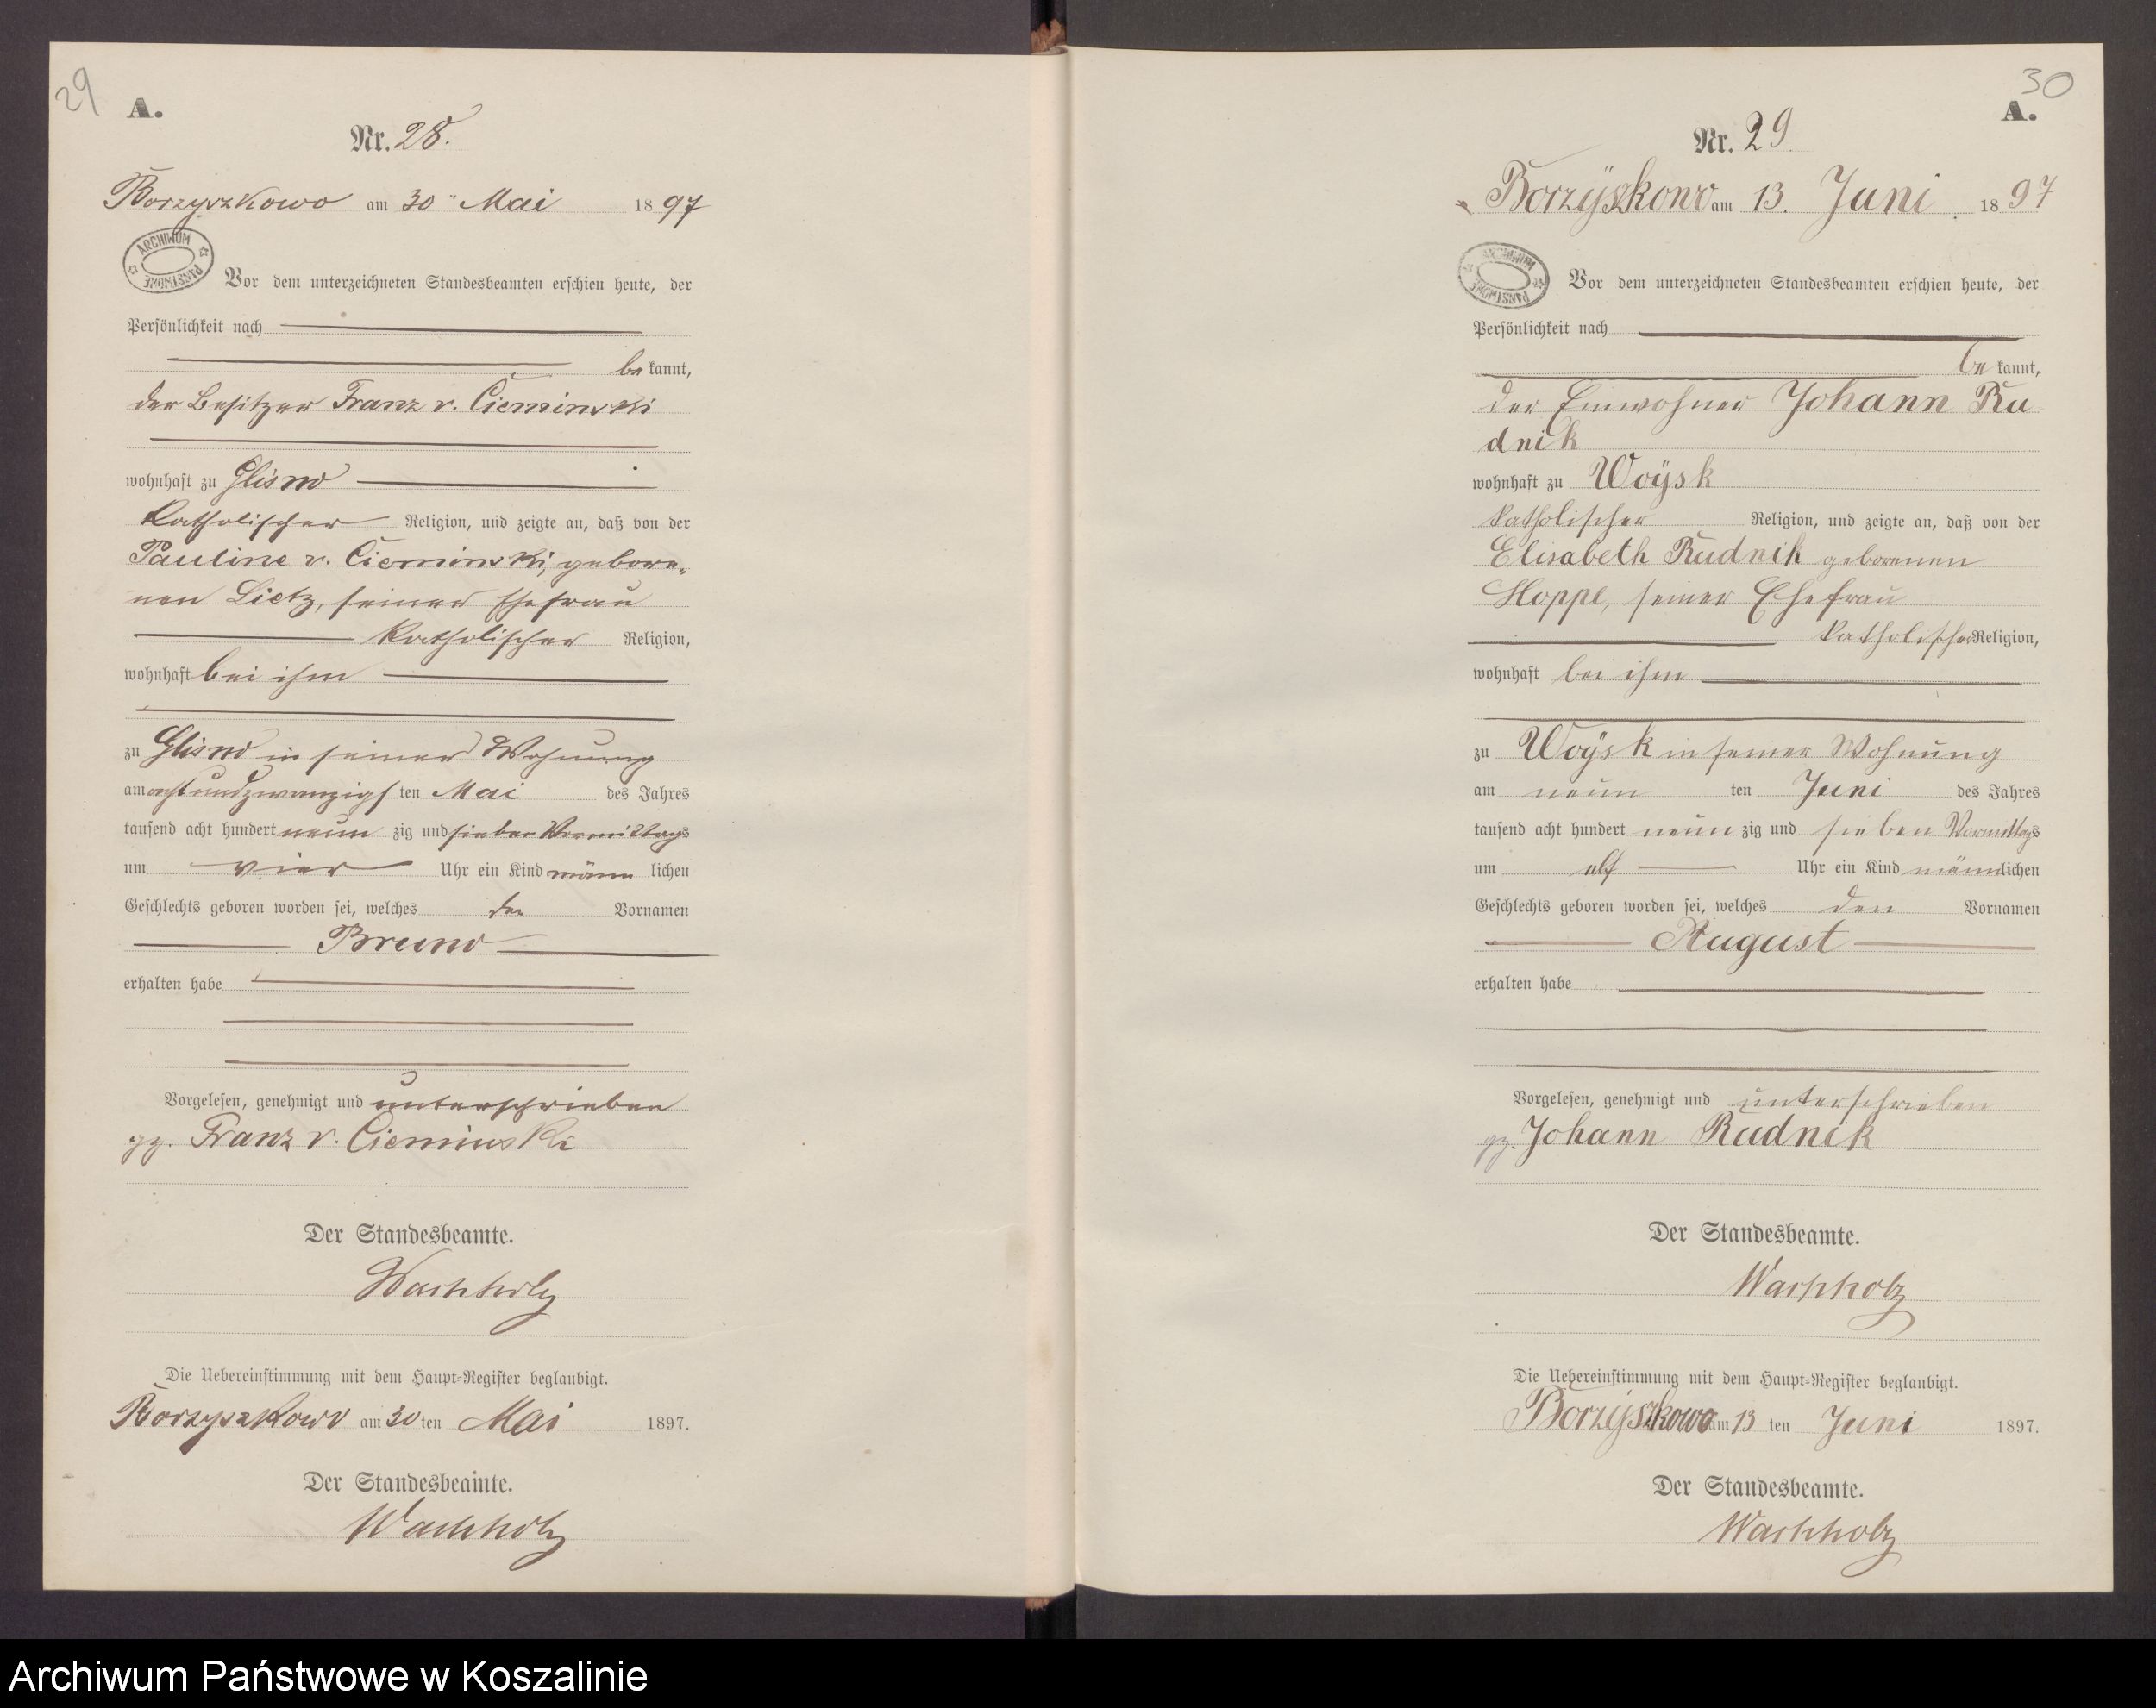 29
A.
Nr. 28.
Borzyszkowo am 30ten Mai 1897
ARCHIWUM PAŃSTWOWE
Vor dem unterzeichneten Standesbeamten erschien heute, der
Persönlichkeit nach
be kannt,
der Besitzer Franz v. Cieminski
wohnhaft zu Glisno
katholischer Religion, und zeigte an, daß von der
Pauline v. Cieminski, gebore-
nen Lietz, seiner Ehefrau
katholischer Religion,
wohnhaft bei ihm
zu Glisno in seiner Wohnung
am achtundzwanzigsten Mai des Jahres
tausend acht hundert neun zig und sieben Vormittags
um vier Uhr ein Kind männ lichen
Geschlechts geboren worden sei, welches den Vornamen
Bruno
erhalten habe
Vorgelesen, genehmigt und unterschrieben
gz. Franz v. Cieminski
Der Standesbeamte.
Wachholz
Die Uebereinstimmung mit dem Haupt=Register beglaubigt.
Borzyszkowo am 30 ten Mai 1897.
Der Standesbeamte.
Wachholz
30
A.
Nr. 29
Borzÿszkowo am 13. Juni 1897
ARCHIWUM PAŃSTWOWE
Vor dem unterzeichneten Standesbeamten erschien heute, der
Persönlichkeit nach
be kannt,
der Einwohner Johann Ru
dnik
wohnhaft zu Woÿsk
katholischer Religion, und zeigte an, daß von der
Elisabeth Rudnik geborenen
Hoppe, seiner Ehefrau
katholischer Religion,
wohnhaft bei ihm
zu Woÿsk in seiner Wohnung
am neun ten Juni des Jahres
tausend acht hundert neun zig und sieben Vormittags
um elf Uhr ein Kind männlichen
Geschlechts geboren worden sei, welches den Vornamen
August
erhalten habe
Vorgelesen, genehmigt und unterschrieben
gz. Johann Rudnik
Der Standesbeamte.
Wachholz
Die Uebereinstimmung mit dem Haupt=Register beglaubigt.
Borzÿszkowo am 13 ten Juni 1897.
Der Standesbeamte.
Wachholz
Archiwum Państwowe w Koszalinie